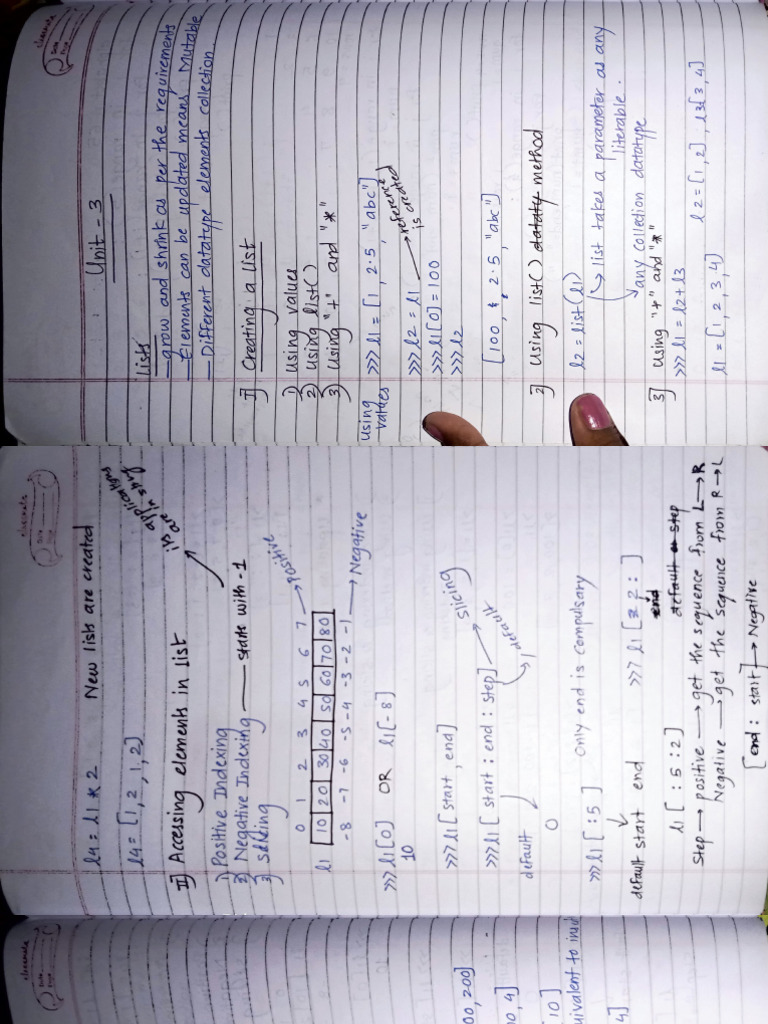 classmate
Date
Page
Unit - 3
Lists
— grow and shrink as per the requirements
— Elements can be updated means Mutable
— Different datatype elements collection
I) Creating a list
1) Using values
2) Using list()
3) Using "+" and "*"
Using values
>>> l1 = [1, 2.5, "abc"]
>>> l2 = l1 → reference is created
>>> l1[0] = 100
>>> l2
[100, 2.5, "abc"]
2] Using list() method
l2 = list(l1)
↳ list takes a parameter as any iterable.
any collection datatype
3] Using "+" and "*"
>>> l1 = l2 + l3 l2 = [1, 2], l3[3, 4]
l1 = [1, 2, 3, 4]
classmate
Date
Page
l4 = l1 * 2 New lists are created
l4 = [1, 2, 1, 2]
II) Accessing elements in list → applications are in string
1) Positive Indexing
2) Negative Indexing — starts with -1
3) Slicing
0 1 2 3 4 5 6 7 → Positive
l1 10 20 30 40 50 60 70 80
-8 -7 -6 -5 -4 -3 -2 -1 → Negative
>>> l1[0] OR l1[-8]
10
>>> l1[start, end]
>>> l1[start : end : step] → Slicing
default 0
1 default
>>> l1[:5] only end is compulsary
default start end
>>> l1[2:]
l1[:5:2]
default step
Step → positive → get the sequence from L → R
Negative → get the sequence from R → L
[end : start] → Negative
classmate
Date
Page
00, 200]
00, 4]
10]
uivalent to
4]